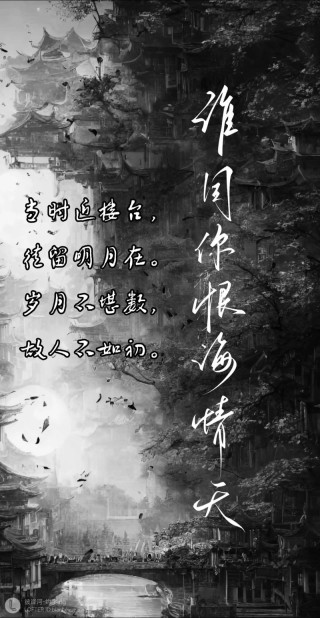 谁同你恨海情天
当时近楼台，
徒留明月在。
岁月不堪数，
故人不如初。